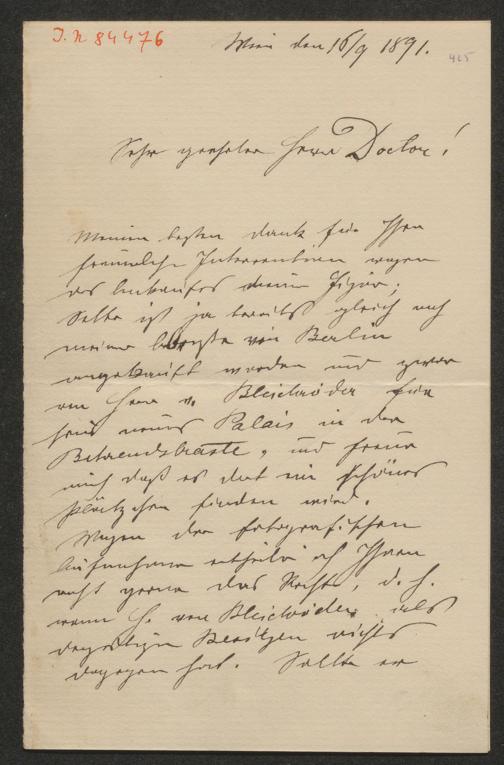 I.N 84476
Wien den 16/9 1891.
425
Sehr geehrter Herr Doctor!
Meinen besten Dank für Ihre
freundliche Intervention wegen
des Ankaufes meiner Figur;
Selbe ist ja bereits gleich nach
meiner Abreise von Berlin
angekauft worden und zwar
von Herrn v. Bleichröder für
sein neues Palais in der
Behrendstraße, und freue
mich daß es dort ein schönes
Plätzchen finden wird.
Wegen der fotografischen
Aufnahme ertheile ich Ihnen
recht gerne das Recht, d. h.
wenn H. von Bleichröder als
derzeitiger Besitzer nichts
dagegen hat. Sollte er